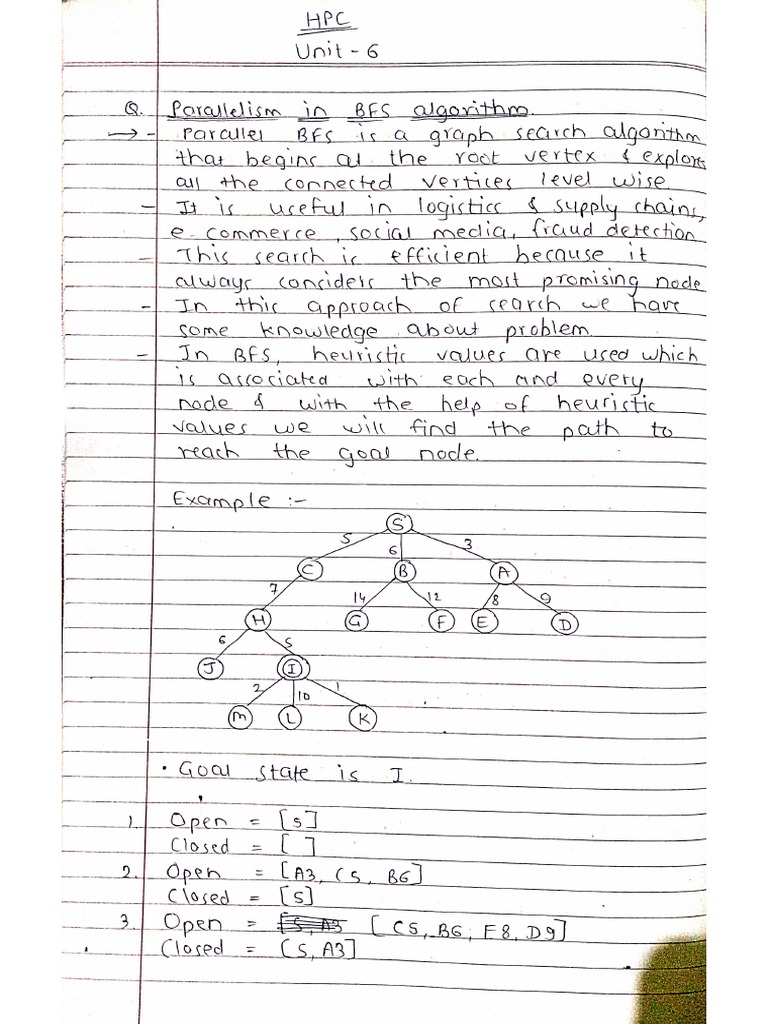 HPC
Unit - 6
Q. Parallelism in BFS algorithm.
→ - Parallel BFS is a graph search algorithm
that begins at the root vertex & explores
all the connected vertices level wise
- It is useful in logistics & supply chains,
e commerce, social media, fraud detection
- This search is efficient because it
always considers the most promising node
- In this approach of search we have
some knowledge about problem.
- In BFS, heuristic values are used which
is associated with each and every
node & with the help of heuristic
values we will find the path to
reach the goal node.
Example :-
S
5 6 3
C B A
7 14 12 8 9
H G F E D
6 5
J I
2 10 1
M L K
• Goal state is I.
1. Open = [S]
Closed = [ ]
2. Open = [A3, C5, B6]
Closed = [S]
3. Open = [S, A3 [C5, B6, E8, D9]
Closed = [S, A3]